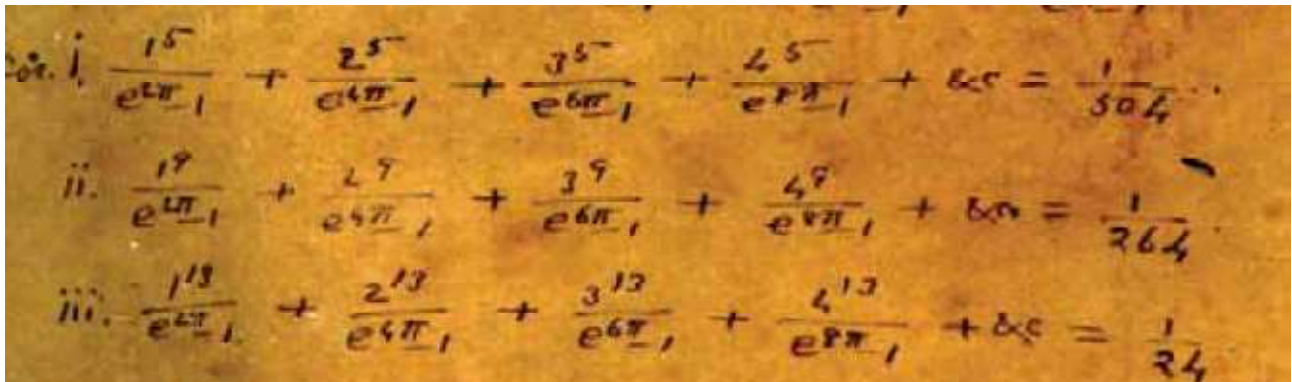 Cor. i. 1^5/(e^{2π}-1) + 2^5/(e^{4π}-1) + 3^5/(e^{6π}-1) + 4^5/(e^{8π}-1) + &c = 1/504.
ii. 1^9/(e^{2π}-1) + 2^9/(e^{4π}-1) + 3^9/(e^{6π}-1) + 4^9/(e^{8π}-1) + &c = 1/264.
iii. 1^13/(e^{2π}-1) + 2^13/(e^{4π}-1) + 3^13/(e^{6π}-1) + 4^13/(e^{8π}-1) + &c = 1/24